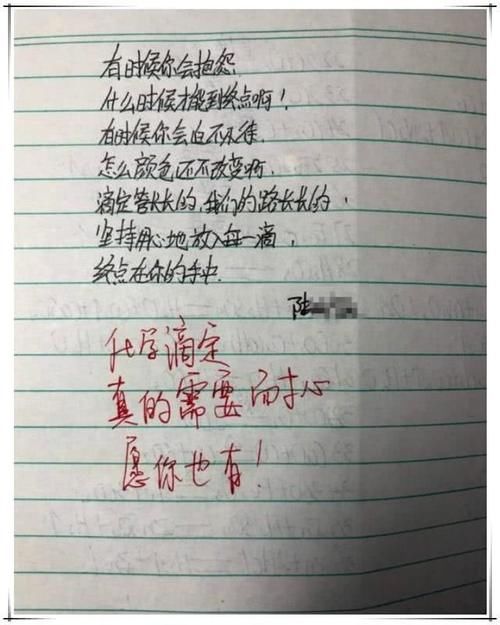 有时候你会抱怨
什么时候才能到终点啊！
有时候你会迫不及待
怎么颜色还不改变呀.
滴定管长长的，我们的路长长的，
坚持用心地放入每一滴，
终点在你的手中.
陆
化学滴定
真的需要耐心
愿你也有！